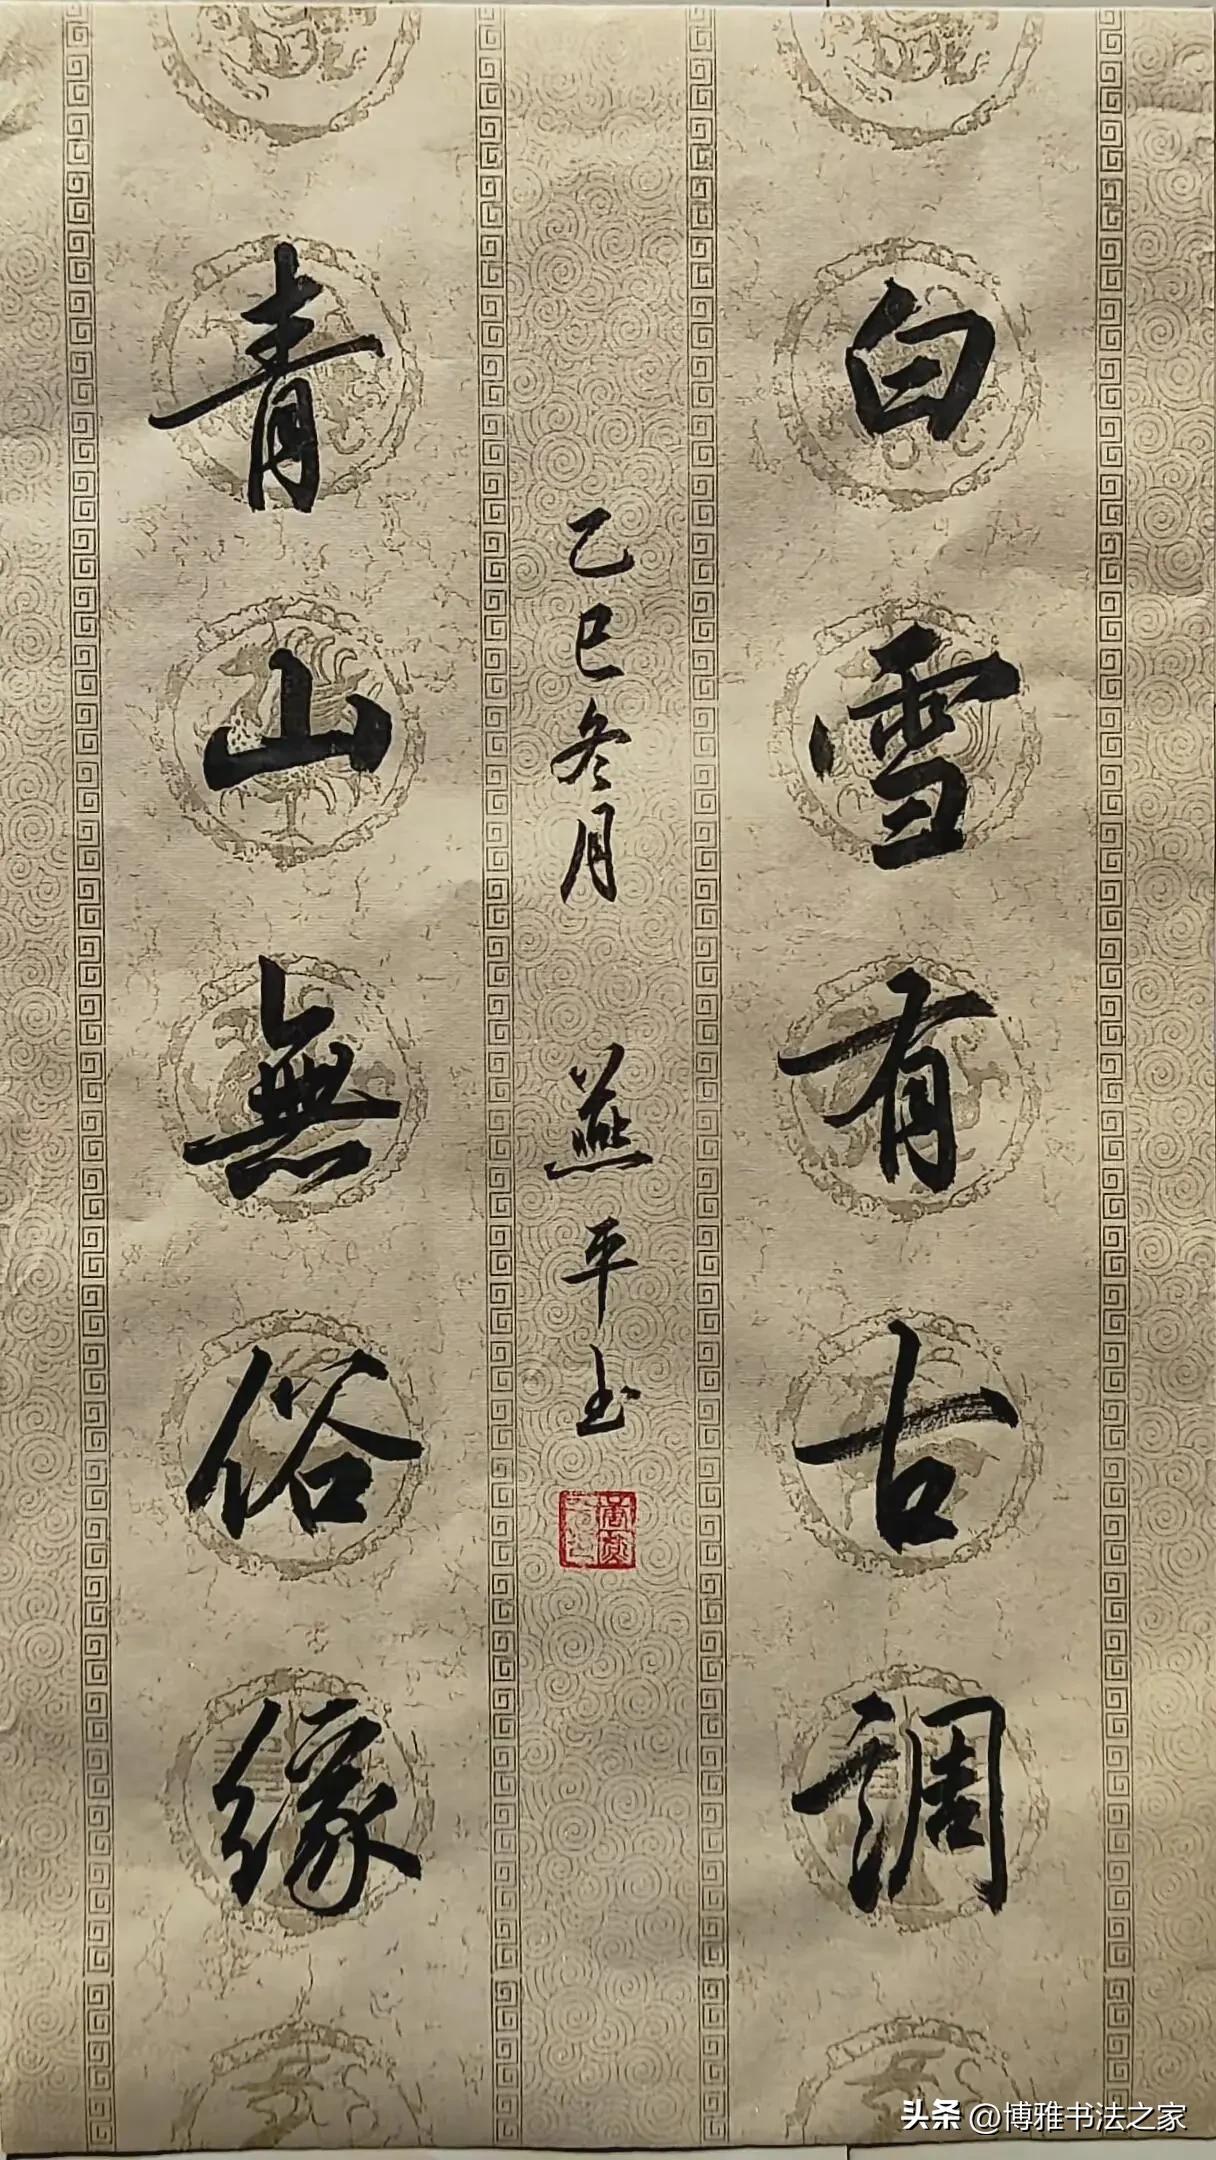 白雪有古調
青山無俗緣
乙巳冬月 燕平书
头条 @博雅书法之家